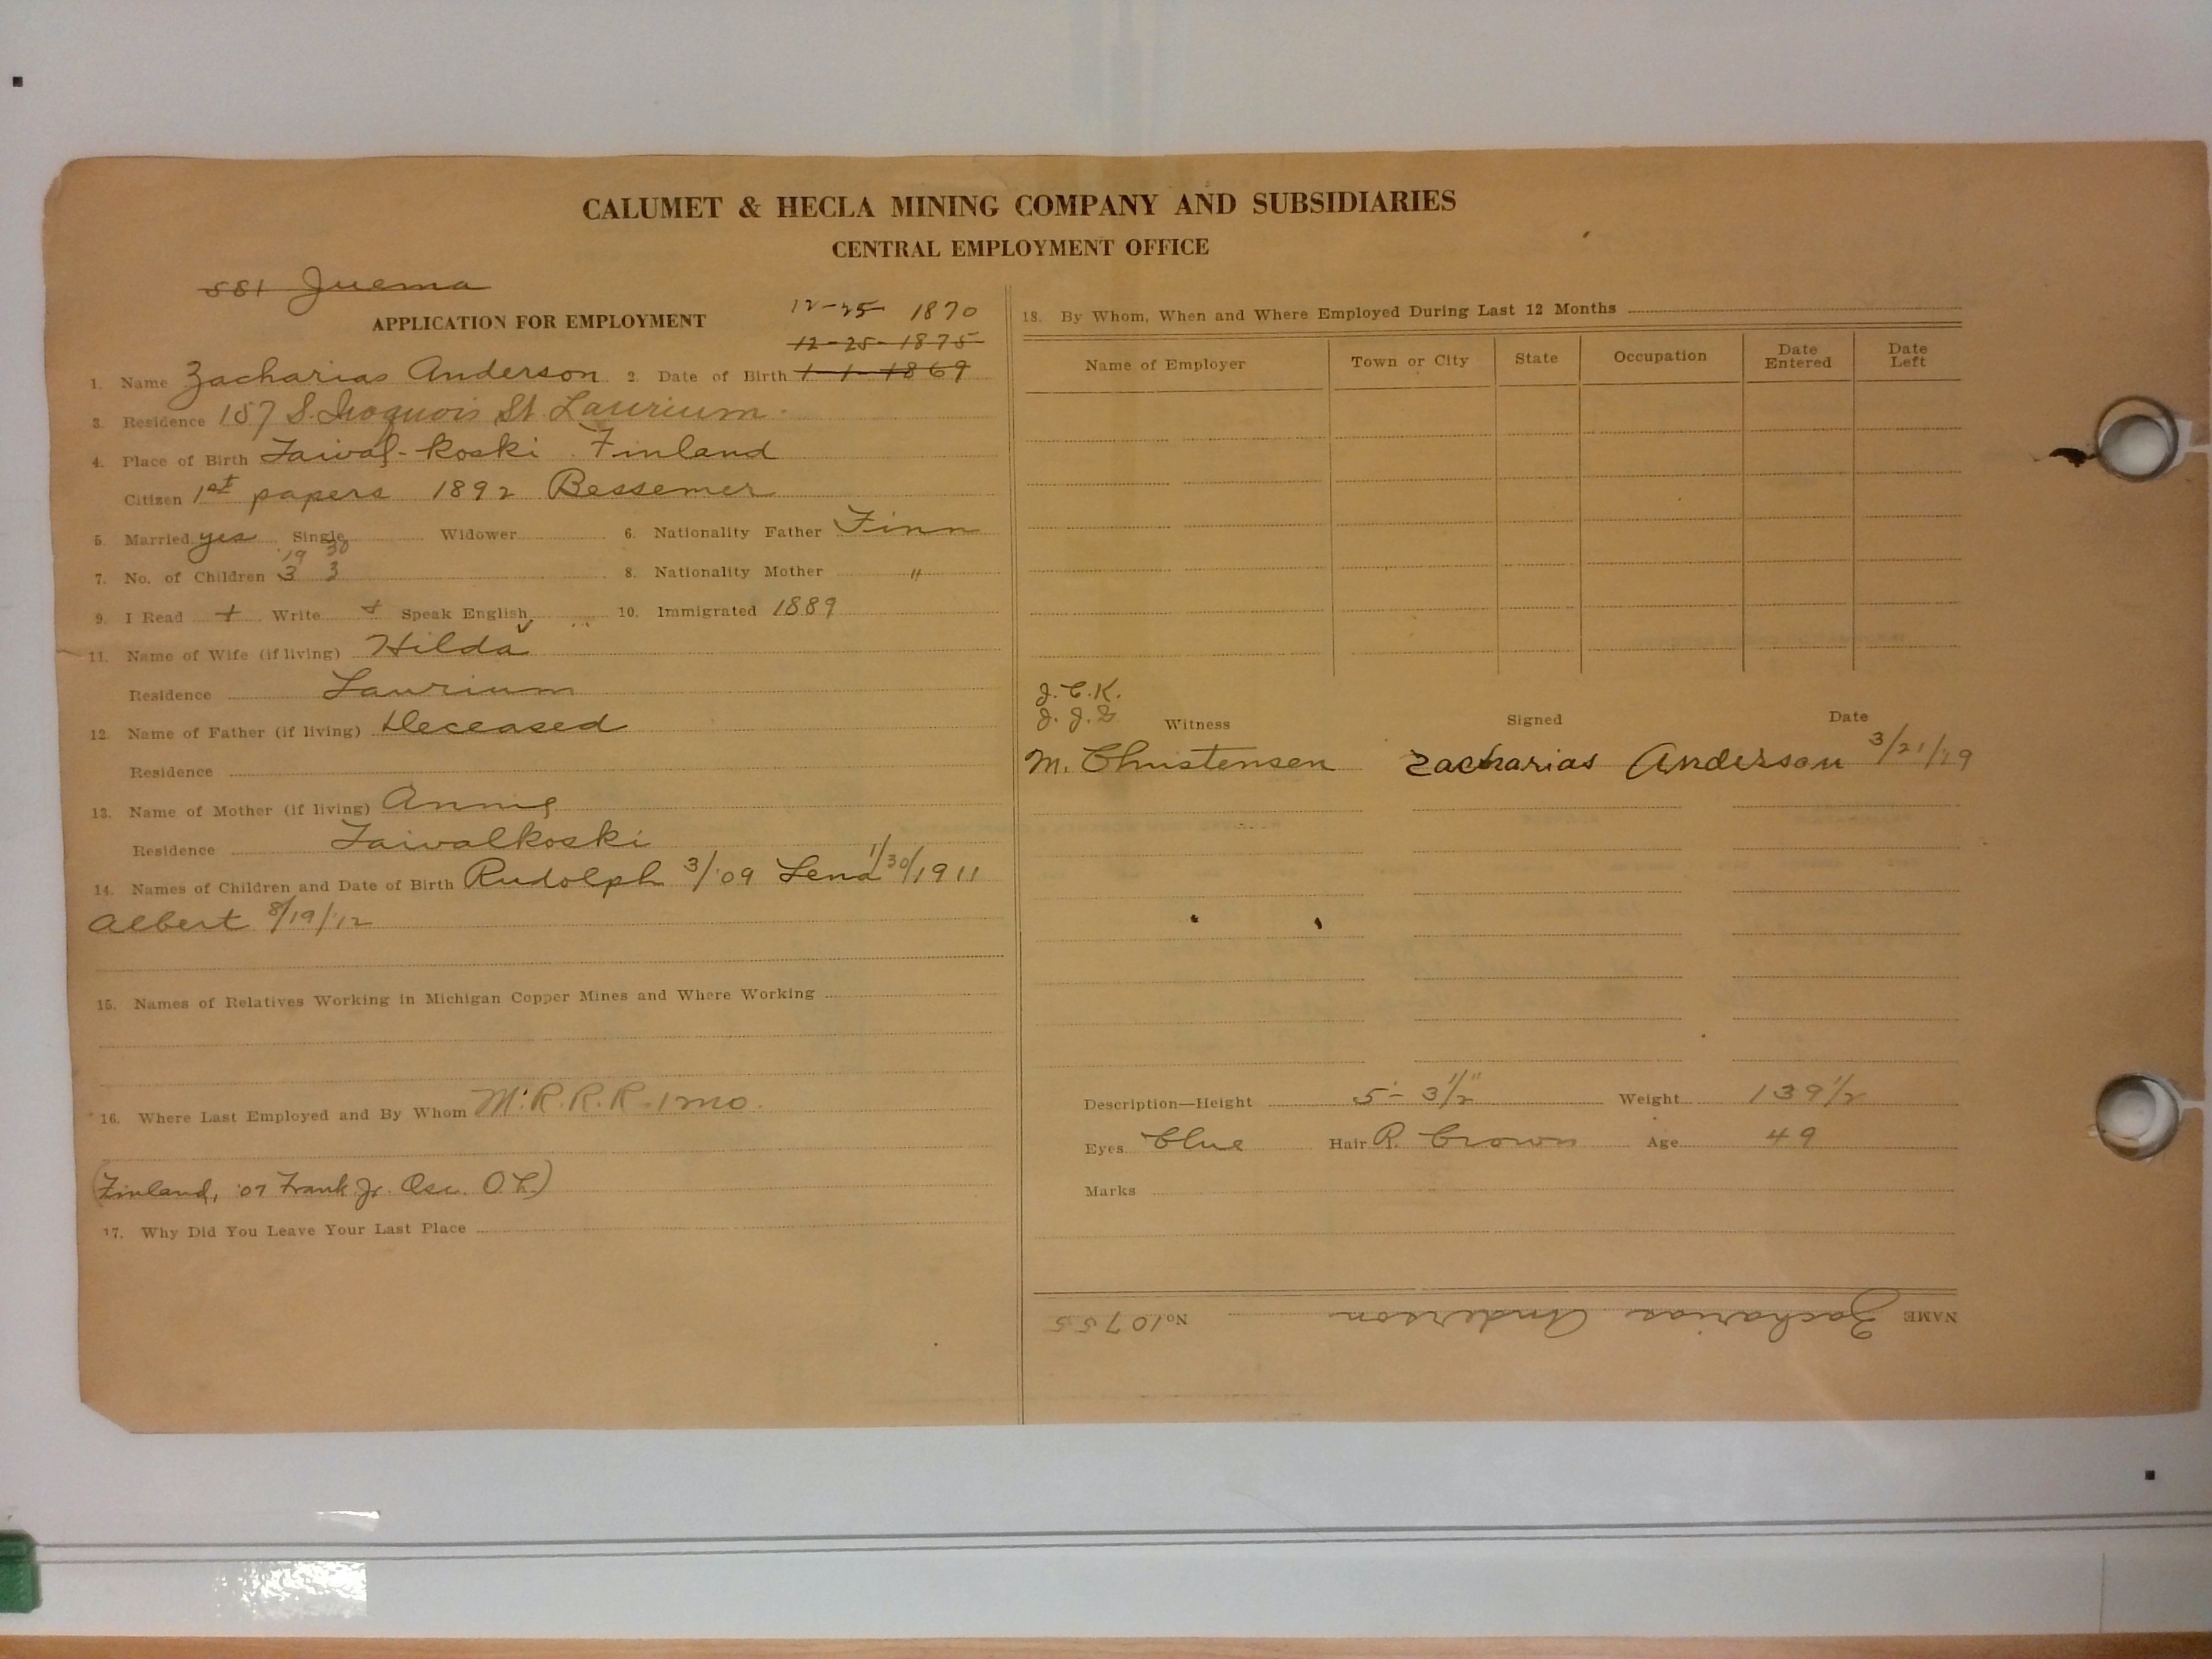 CALUMET & HECLA MINING COMPANY AND SUBSIDIARIES
CENTRAL EMPLOYMENT OFFICE
581 Juema
APPLICATION FOR EMPLOYMENT
12-25 1870
12-25-1875
1. Name Zacharias Anderson 2. Date of Birth 1-1-1869
3. Residence 157 S. Iroquois St. Laurium
4. Place of Birth Taival-koski Finland
Citizen 1st papers 1892 Bessemer
5. Married yes Single Widower 6. Nationality Father Finn
'19 30
7. No. of Children 3 3 8. Nationality Mother "
9. I Read + Write + Speak English 10. Immigrated 1889
11. Name of Wife (if living) Hilda
Residence Laurium
12. Name of Father (if living) Deceased
Residence
13. Name of Mother (if living)
Residence Taivalkoski
14. Names of Children and Date of Birth Rudolph 3/'09 Lena 1/30/1911
Albert 8/19/'12
15. Names of Relatives Working in Michigan Copper Mines and Where Working
16. Where Last Employed and By Whom M.R.R.R. 1 mo.
(Finland, '07 Frank Jr. Osc. O.L.)
17. Why Did You Leave Your Last Place
18. By Whom, When and Where Employed During Last 12 Months
Name of Employer Town or City State Occupation Date Entered Date Left
J.C.K.
J.J.
Witness Signed Date
M. Christensen Zacharias Anderson 3/21/19
Description—Height 5'- 3 1/2" Weight 139 1/2
Eyes blue Hair R. brown Age 49
Marks
NAME Zacharias Anderson No 10755